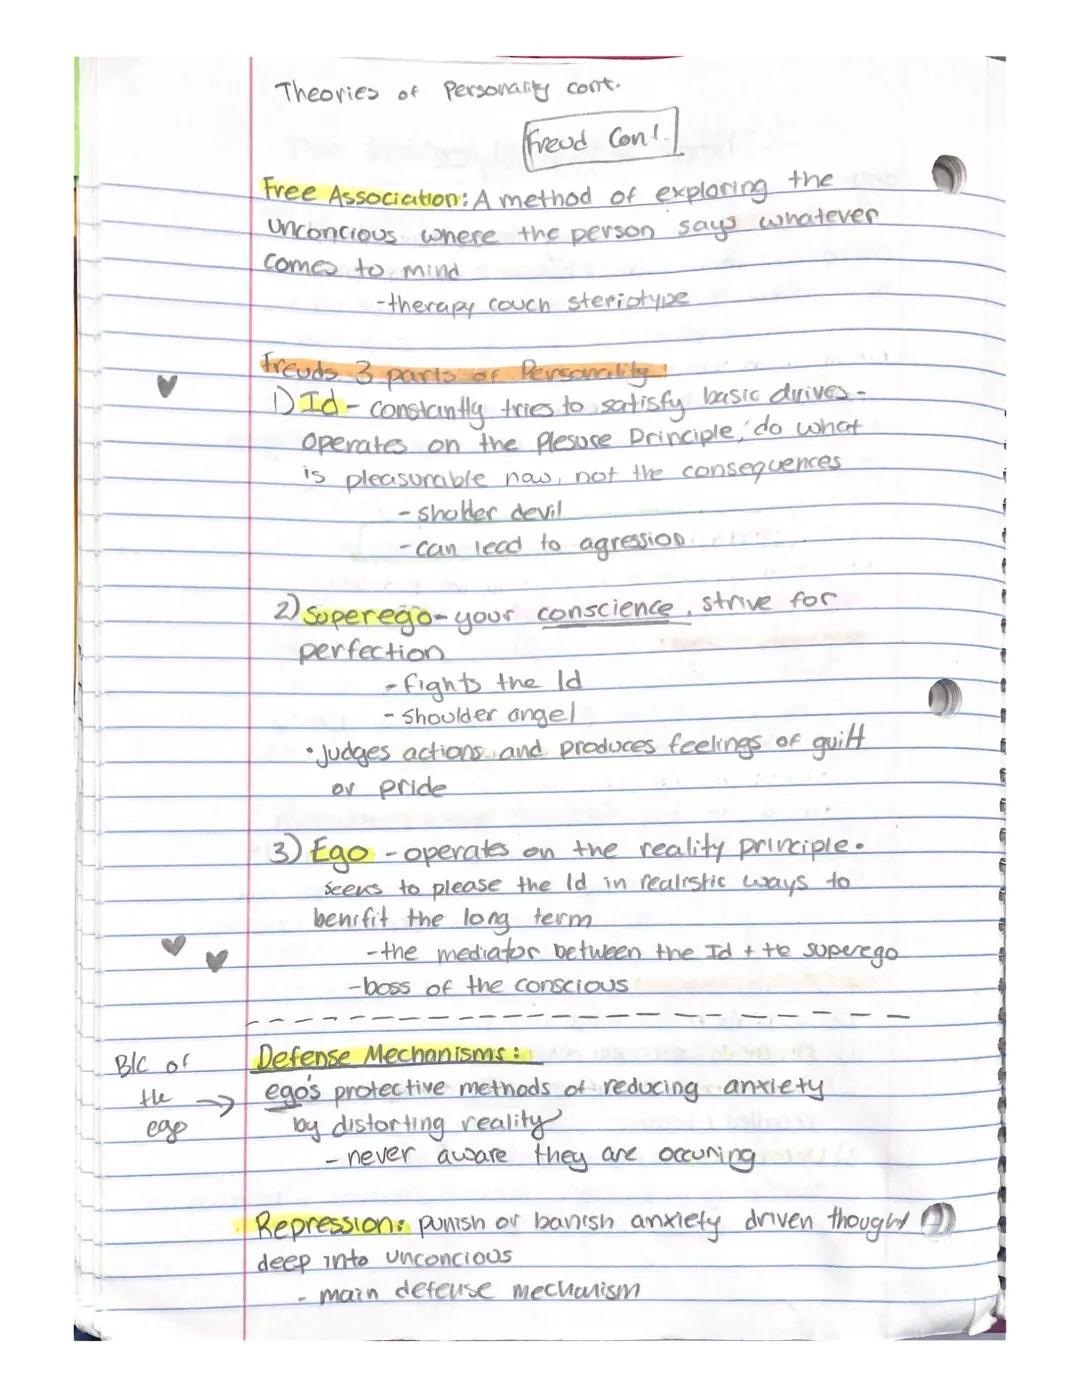 Theories of Personality cont.
Freud Cont.
Free Association: A method of exploring the
unconcious where the person says whatever
comes to mind
-therapy couch steriotype
Freuds 3 parts of Personality:
1) Id - constantly tries to satisfy basic drives -
operates on the Plesure Principle, do what
is pleasurable now, not the consequences
- sholder devil
- can lead to agression
2) Superego - your conscience, strive for
perfection
- fights the Id
- shoulder angel
• judges actions and produces feelings of guilt
or pride
3) Ego - operates on the reality principle.
seeks to please the Id in realistic ways to
benifit the long term
-the mediator between the Id + the superego
-boss of the conscious
B/c of
the
ego →
Defense Mechanisms:
ego's protective methods of reducing anxiety
by distorting reality
- never aware they are occuring
Repression: punish or banish anxiety driven thought
deep into unconcious
- main defense mechanism